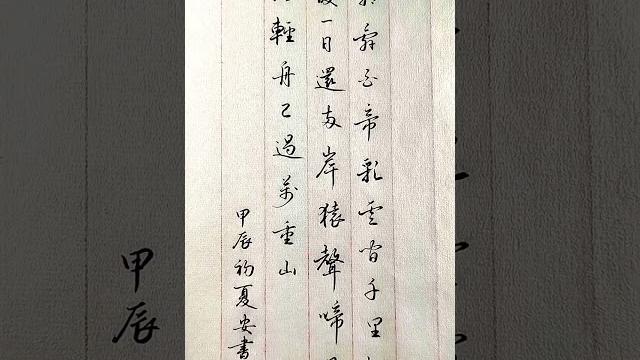 辭白帝彩雲間千里
一日還兩岸猿聲啼
輕舟已過萬重山
甲辰初夏安書
甲辰